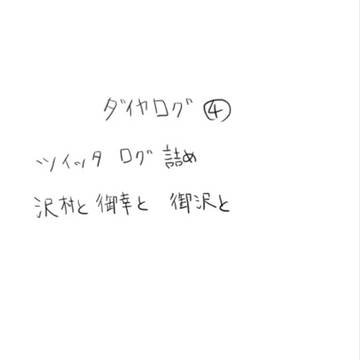 ダイヤログ④
ツイッタ ログ 詰め
沢村と御幸と 御沢と